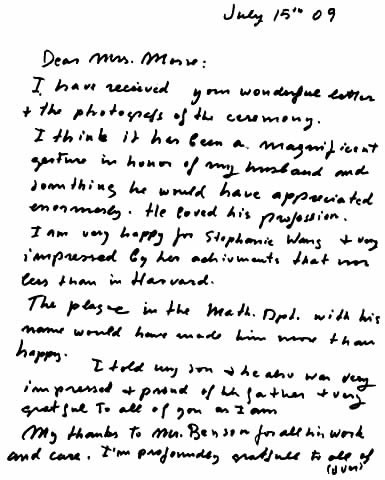 July 15th 09
Dear Mrs. Morse:
I have received your wonderful letter
+ the photografs of the ceremony.
I think it has been a magnificent
gesture in honor of my husband and
something he would have appreciated
enormously. He loved his profession.
I am very happy for Stephanie Wang + very
impressed by her achivments that
less than in Harvard.
The plaque in the Math. Dpt. with his
name would have made him more than
happy.
I told my son + he also was very
impressed + proud of his father + very
grateful to all of you as I am
My thanks to Mr. Benson for all his work
and care. I'm profoundly grateful to all of